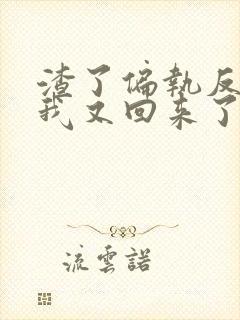 渣了偏執反
我又回来了
流雲諾